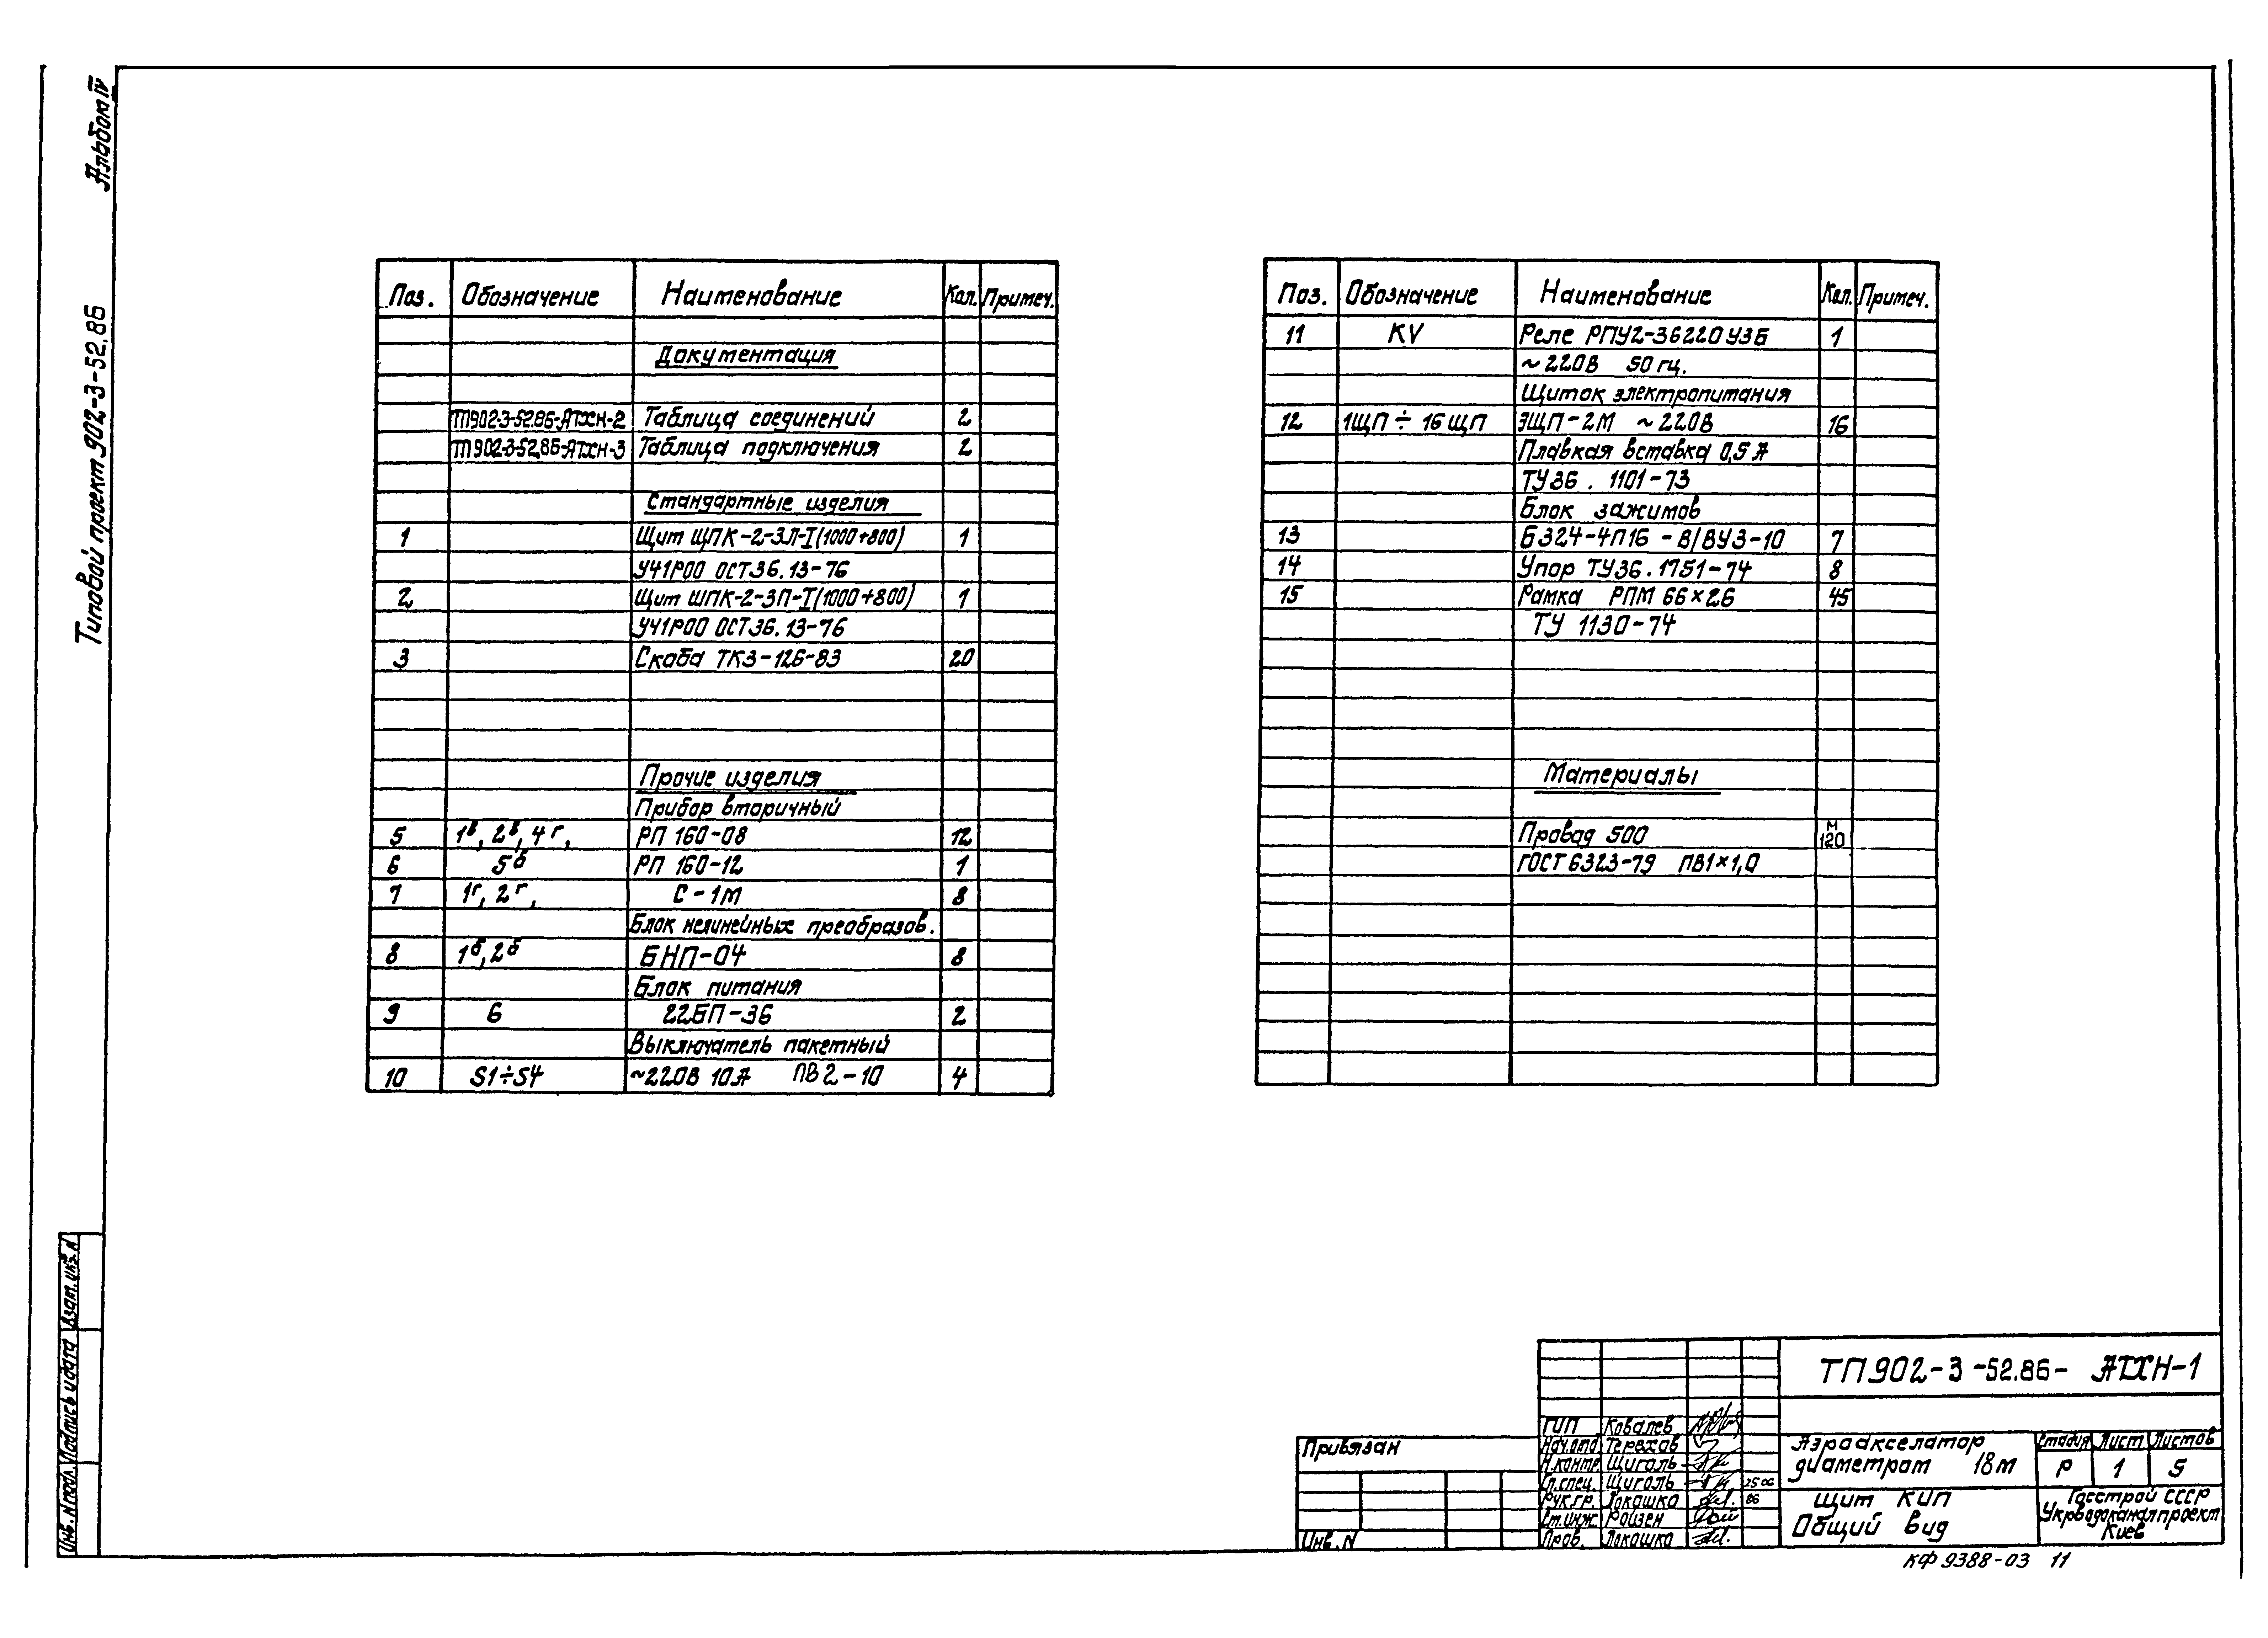 Альбом IV
Типовой проект 902-3-52.86
Поз. Обозначение Наименование Кол. Примеч.
Документация
ТП902-3-52.86-АТХН-2 Таблица соединений 2
ТП902-3-52.86-АТХН-3 Таблица подключения 2
Стандартные изделия
1 Щит ЩПК-2-ЗЛ-I(1000+800) 1
УЧ1Р00 ОСТ36.13-76
2 Щит ШПК-2-ЗП-I(1000+800) 1
УЧ1Р00 ОСТ36.13-76
3 Скоба ТК3-126-83 20
Прочие изделия
Прибор вторичный
5 1в, 2в, 4г, РП 160-08 12
6 5б РП 160-12 1
7 1г, 2г, С-1М 8
Блок нелинейных преобразов.
8 1б, 2б БНП-04 8
Блок питания
9 6 22БП-36 2
Выключатель пакетный
10 S1÷S4 ~220В 10А ПВ2-10 4
Поз. Обозначение Наименование Кол. Примеч.
11 KV Реле РПУ2-36220У3Б 1
~220В 50гц.
Щиток электропитания
12 1ЩП÷16ЩП ЭЩП-2М ~220В 16
Плавкая вставка 0,5А
ТУ36.1101-73
Блок зажимов
13 Б324-4П16-В/ВУ3-10 7
14 Упор ТУ36.1751-74 8
15 Рамка РПМ 66×26 45
ТУ 1130-74
Материалы
Провод 500 м 120
ГОСТ 6323-79 ПВ1×1,0
Взам. инв. N
Подпись и дата
Инв. N подл.
Привязан
Инв. N
ГИП Ковалев
Нач.отд. Терехов
Н.контр. Щиголь
Гл.спец. Щиголь 25 06
Рук.гр. Локошко 86
Ст.инж. Ройзен
Пров. Локошко
ТП902-3-52.86- АТХН-1
Аэроакселатор
диаметром 18м
Стадия Лист Листов
Р 1 5
Щит КИП
Общий вид
Госстрой СССР
Укрводоканалпроект
Киев
КФ 9388-03 11